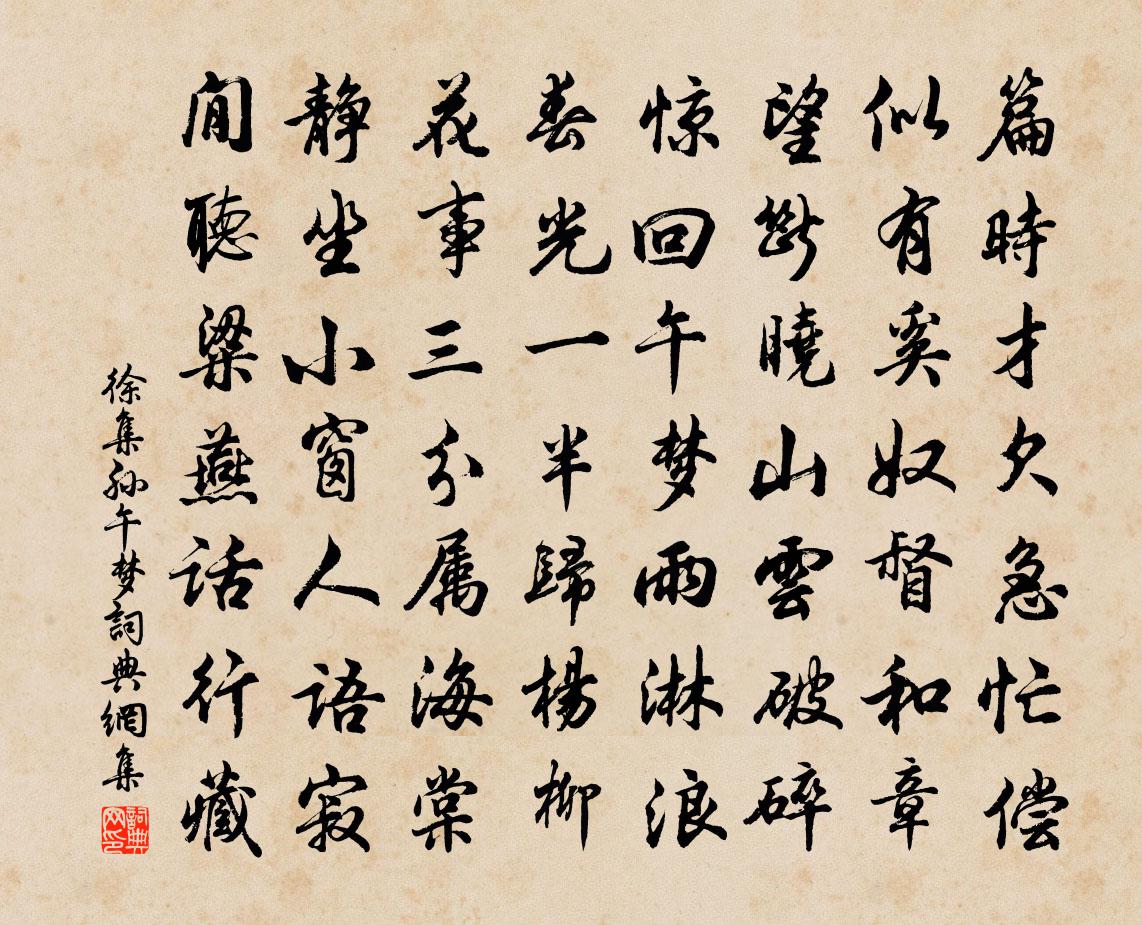 篇時才欠急忙偿
似有奚奴督和章
望斷曉山雲破碎
惊回午梦雨淋浪
春光一半歸楊柳
花事三分属海棠
静坐小窗人語寂
閒聽梁燕話行藏
徐集孙午梦詞典網集
詞典网印